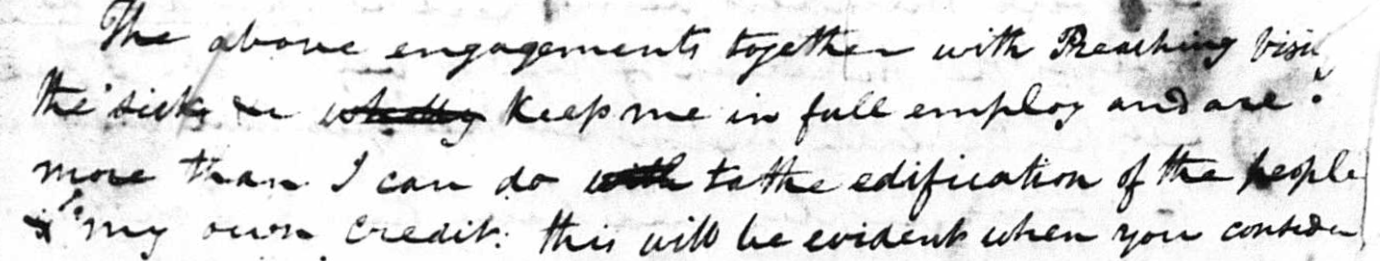 The above engagements together with Preaching Visi
the sick &c wholly keep me in full employ and are
more than I can do with to the edification of the people
to my own credit. this will be evident when you consider